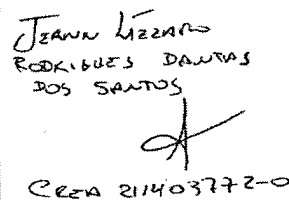 JEANN LIZZARO
RODRIGUES DANTAS
DOS SANTOS
CREA 211403772-0